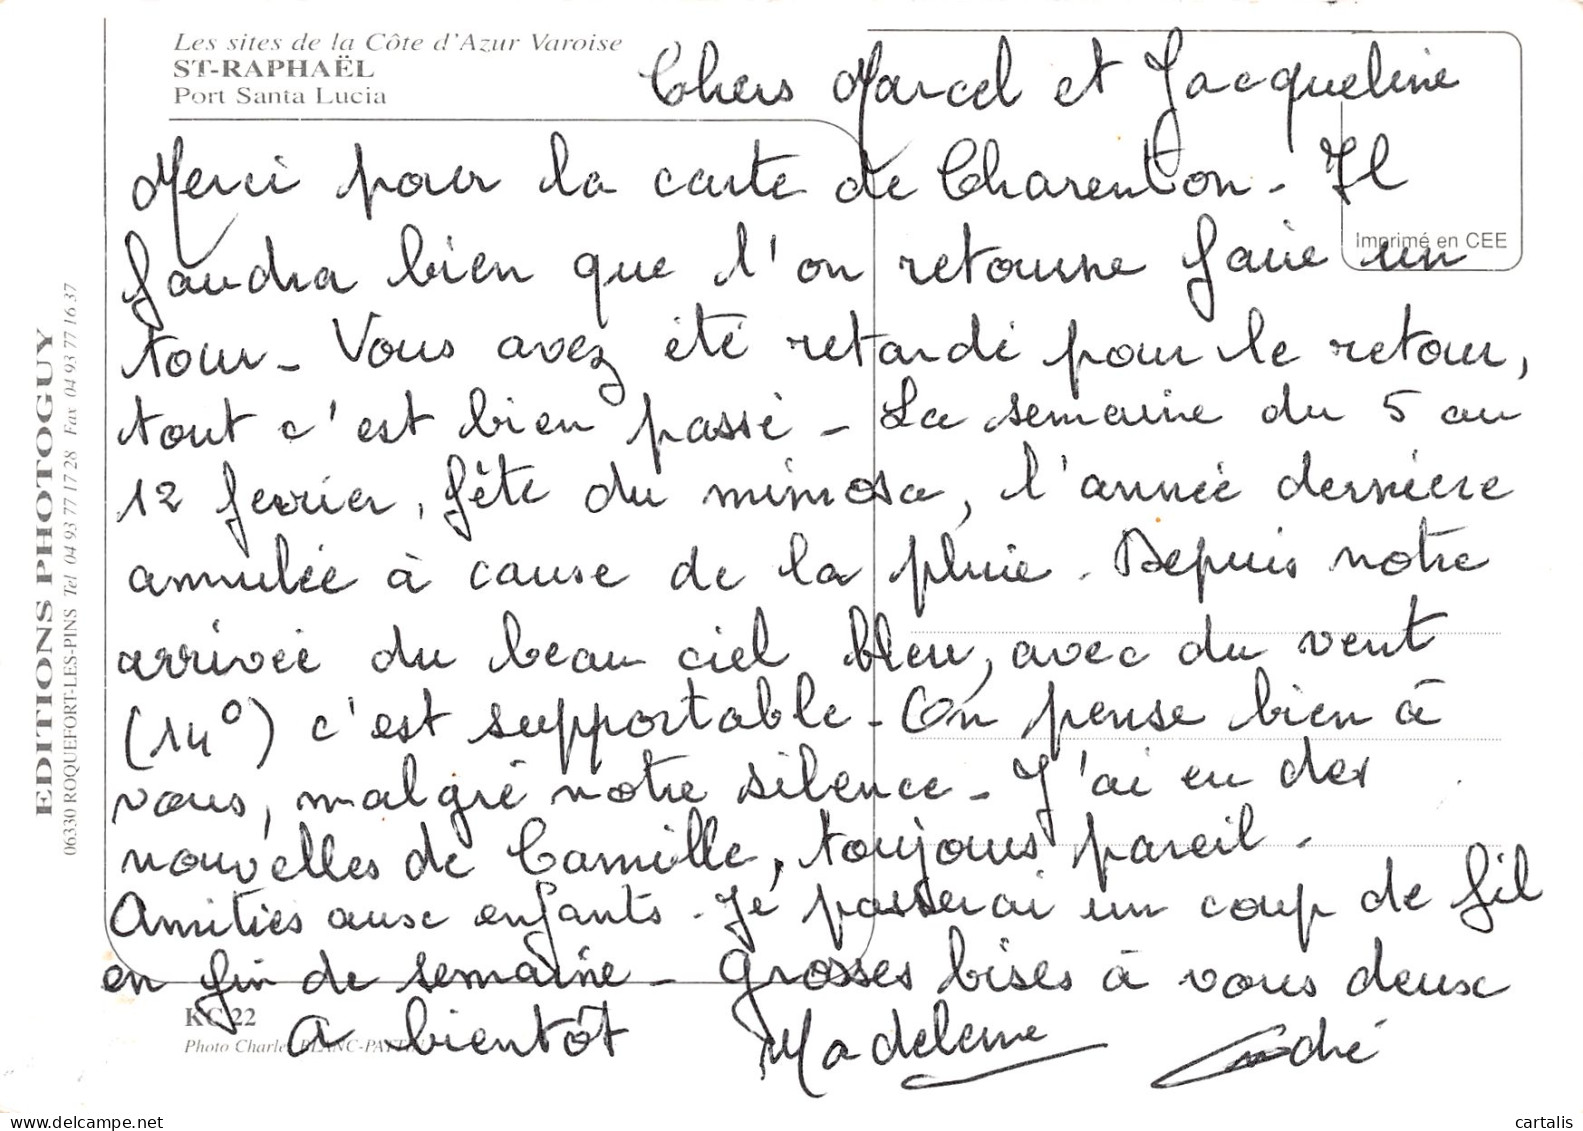 Les sites de la Côte d'Azur Varoise
ST-RAPHAËL
Port Santa Lucia
Chers Marcel et Jacqueline
Merci pour la carte de Charenton - Il
faudra bien que l'on retourne faire un
tour - Vous avez été retardé pour le retour,
tout c'est bien passé - La semaine du 5 au
12 fevrier, fête du mimosa, l'année dernière
annulée à cause de la pluie. Depuis notre
arrivée du beau ciel bleu, avec du vent
(14°) c'est supportable - On pense bien à
vous, malgré notre silence - J'ai eu des
nouvelles de Camille, toujours pareil -
Amitiés aux enfants - Je passerai un coup de fil
en fin de semaine - Grosses bises à vous deux
A bientôt Madeleine André
Imprimé en CEE
EDITIONS PHOTOGUY
06330 ROQUEFORT-LES-PINS Tel 04 93 77 17 28 Fax 04 93 77 16 37
KC 22
Photo Charles BLANC-PATTIN
cartalis
delcampe.net